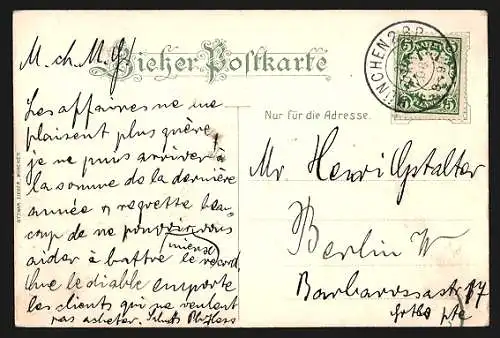 M. ch. M. G
Zieher Postkarte
MÜNCHEN 2 B.P.
5 5
5 5
Nur für die Adresse.
OTTMAR ZIEHER, MÜNCHEN
Les affaires ne me
plaisent plus guère,
je ne puis arriver à
la somme de la dernière
année & regrette beau-
coup de ne pouvoir vous
aider à battre le record
mieux
Que le diable emporte
les clients qui ne veulent
pas acheter. Saluts
Mr Henri Gstalter
Berlin W
Barbarossastr 17